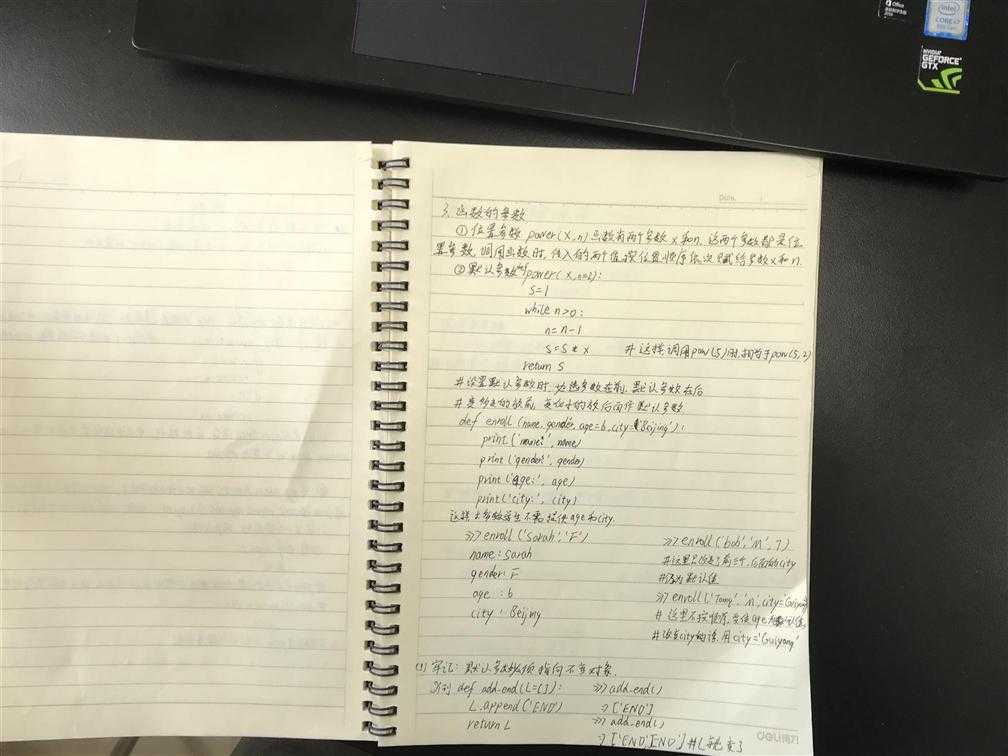 Office
intel
CORE i7
NVIDIA
GEFORCE
GTX
Date.
3. 函数的参数
① 位置参数 power(x,n)函数有两个参数 x和n, 这两个参数都是位
置参数, 调用函数时, 传入的两个值按位置顺序依次赋给参数x和n.
② 默认参数 def power(x,n=2):
s=1
while n>0:
n=n-1
s=s*x #这样,调用pow(5)时,相当于pow(5,2)
return s
#设置默认参数时, 必选参数在前, 默认参数在后
#变化大的放前, 变化小的放后面作默认参数
def enroll (name, gender, age=6, city='Beijing'):
print('name:', name)
print('gender:', gender)
print('age:', age)
print('city:', city)
这样大多数学生不需提供age和city.
>>> enroll('Sarah','F') >>> enroll('bob','M',7)
name: Sarah #这里只修改了前三个,后面的city
gender: F #仍为默认值
age : 6 >>> enroll('Tomy','M',city='Guiyang'
city : Beijing #这里不按顺序, 使age为默认值,
#该变city的话,用city='Guiyang'
(1) 牢记: 默认参数必须指向不变对象.
def add_end(L=[]): >>> add_end()
L.append('END') > ['END']
return L >>> add_end()
> ['END','END'] #L就变了
deli得力